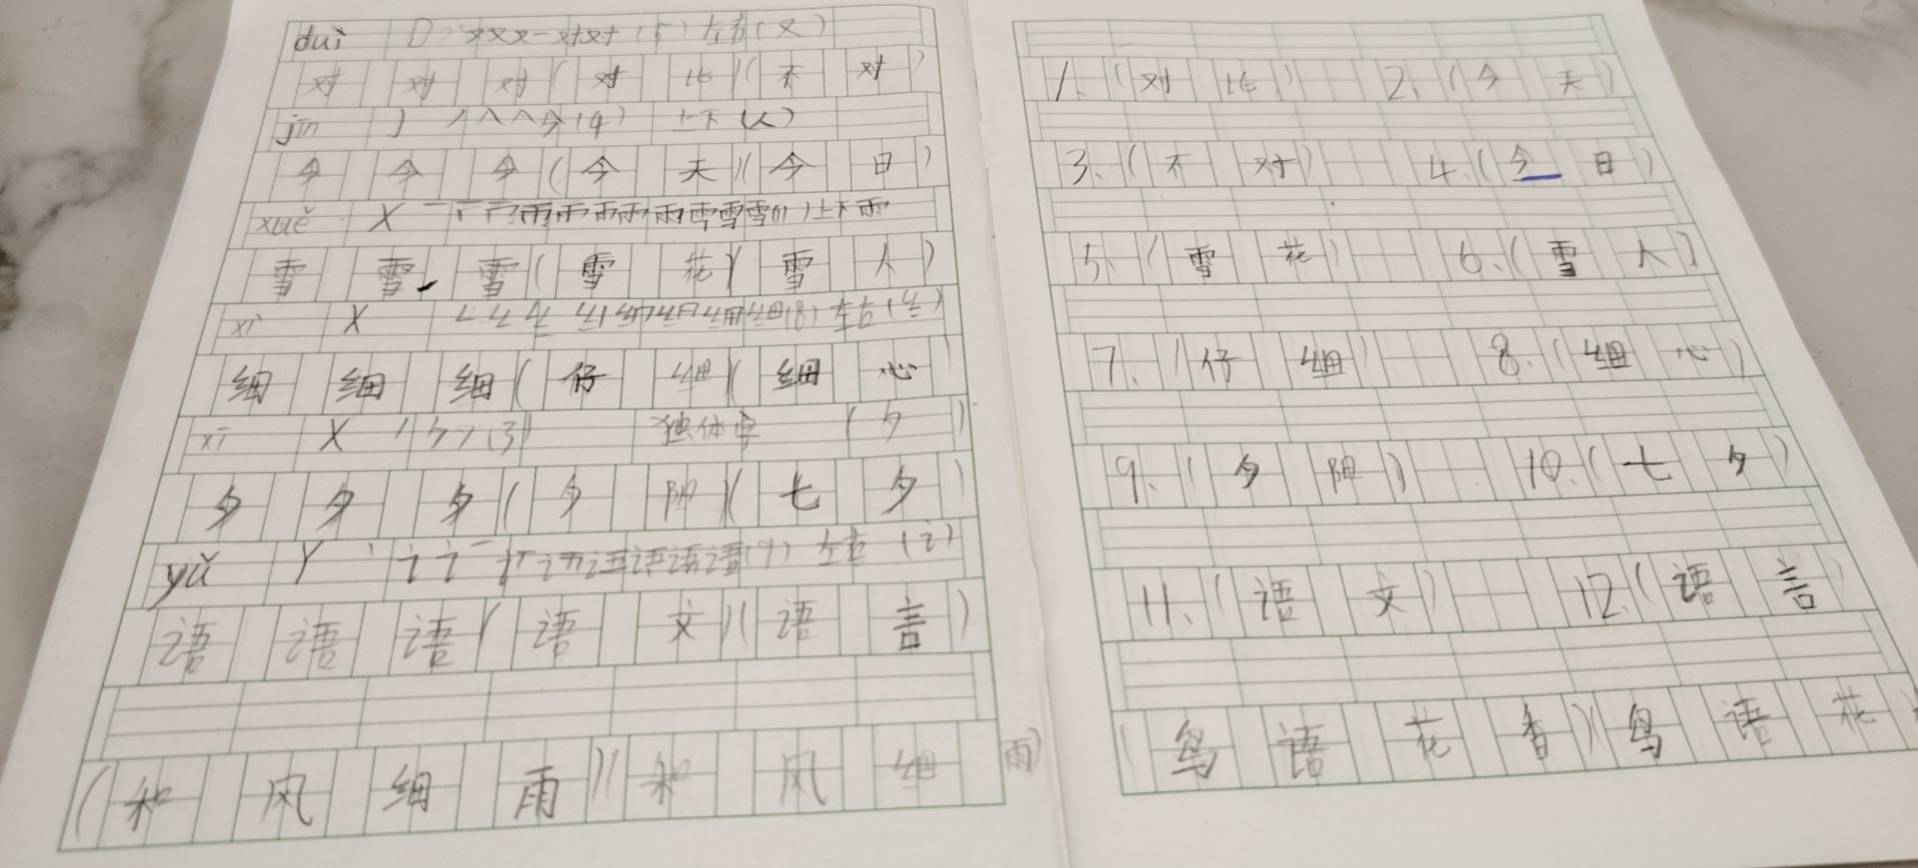 duì D (5) 左右(又)
对 对 对(对 比)(不 对)
jīn J 丿人𠆢今(4) 上下(人)
今 今 今(今 天)(今 日)
xuě X (11)上下
雪 雪 雪(雪 花)(雪 人)
xì X (8)左右(纟)
细 细 细(仔 细)(细 心)
xī X (3) 独体字 (夕)
夕 夕 夕(夕 阳)(七 夕)
yǔ Y (9) 左右 (讠)
语 语 语(语 文)(语 言)
(和 风 细 雨)(和 风 细 雨)
1、(对 比) 2、(今 天)
3、(不 对) 4.(今 日)
5、(雪 花) 6、(雪 人)
7、(仔 细) 8、(细 心)
9、(夕 阳) 10.(七 夕)
11、(语 文) 12.(语 言)
(鸟 语 花 香)(鸟 语 花